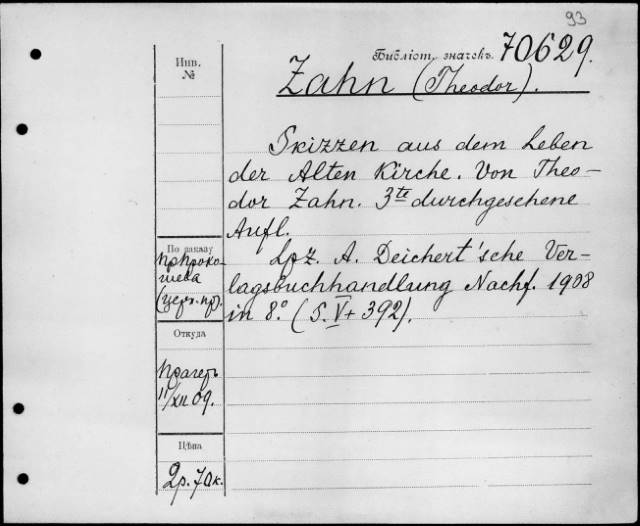 93
Инв.
№
Библіот. значекъ 70629.
Zahn (Theodor).
Skizzen aus dem Leben
der Alten Kirche. Von Theo-
dor Zahn. 3te durchgesehene
Aufl.
Lpz. A. Deichert'sche Ver-
lagsbuchhandlung Nachf. 1908
in 8.° (S. V + 392).
По заказу
пр. Проко-
шева
(церк. пр).
Откуда
Прагеръ
11/XII 09.
Цѣна
2р. 70к.